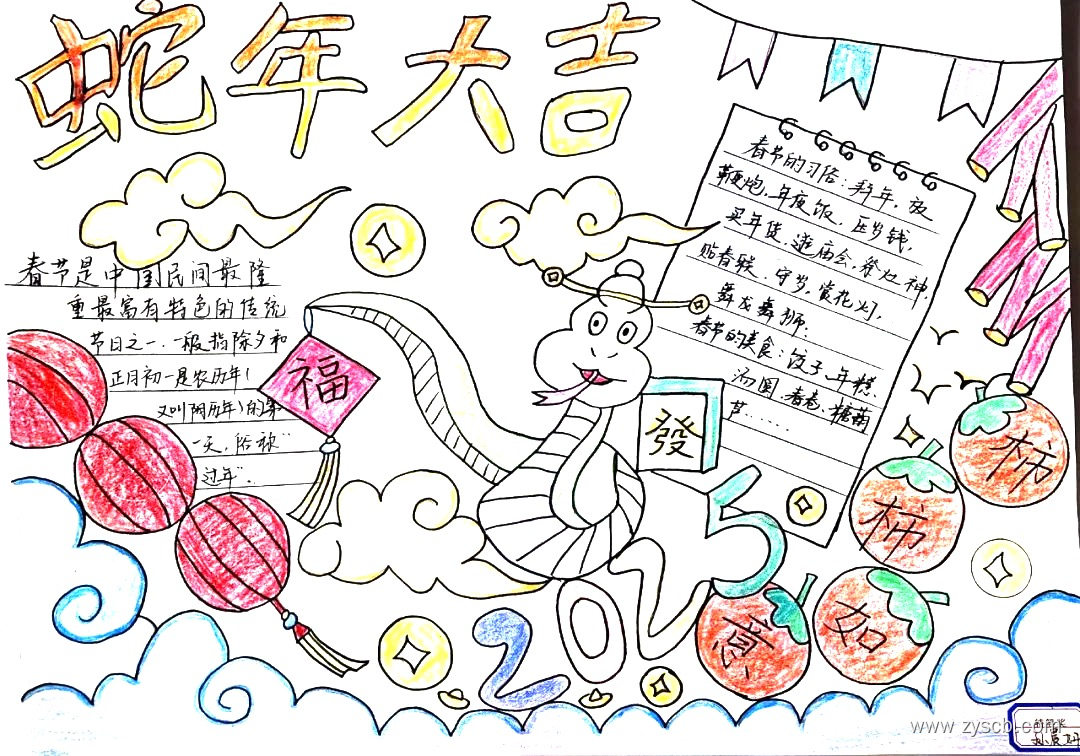 蛇年大吉
春节是中国民间最隆
重最富有特色的传统
节日之一.一般指除夕和
正月初一是农历年(
又叫阴历年)的第
一天,俗称"
过年".
福
春节的习俗:拜年,放
鞭炮,年夜饭,压岁钱,
买年货,逛庙会,祭灶神,
贴春联,守岁,赏花灯,
舞龙舞狮.
春节的美食:饺子、年糕、
汤圆、春卷、糖葫
芦......
發
2025
柿
柿
如
意
www.zyscb.com